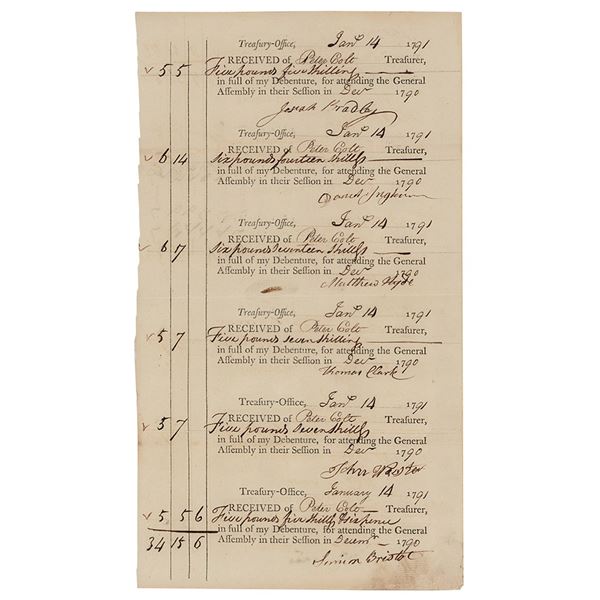 Treasury-Office, Janʸ 14 1791
RECEIVED of Peter Colt Treasurer,
v 5 5 Five pounds five shilling
in full of my Debenture, for attending the General
Assembly in their Session in Decʳ 1790
Josiah Bradley
Treasury-Office, Janʸ 14 1791
RECEIVED of Peter Colt Treasurer,
v 6 14 six pounds fourteen shillgs
in full of my Debenture, for attending the General
Assembly in their Session in Decʳ 1790
Daniel
Treasury-Office, Janʸ 14 1791
RECEIVED of Peter Colt Treasurer,
v 6 7 six pounds Seventeen shillgs
in full of my Debenture, for attending the General
Assembly in their Session in Decʳ 1790
Matthew Hyde
Treasury-Office, Janʸ 14 1791
RECEIVED of Peter Colt Treasurer,
v 5 7 Five pounds seven shilling
in full of my Debenture, for attending the General
Assembly in their Session in Decʳ 1790
Thomas Clark
Treasury-Office, Janʸ 14 1791
RECEIVED of Peter Colt Treasurer,
v 5 7 Five pounds Seven shillgs
in full of my Debenture, for attending the General
Assembly in their Session in Decʳ 1790
John
Treasury-Office, January 14 1791
RECEIVED of Peter Colt Treasurer,
v 5 5 6 Five pounds five shillgs & sixpence
in full of my Debenture, for attending the General
34 15 6 Assembly in their Session in Decemʳ 1790
Simeon Bristol